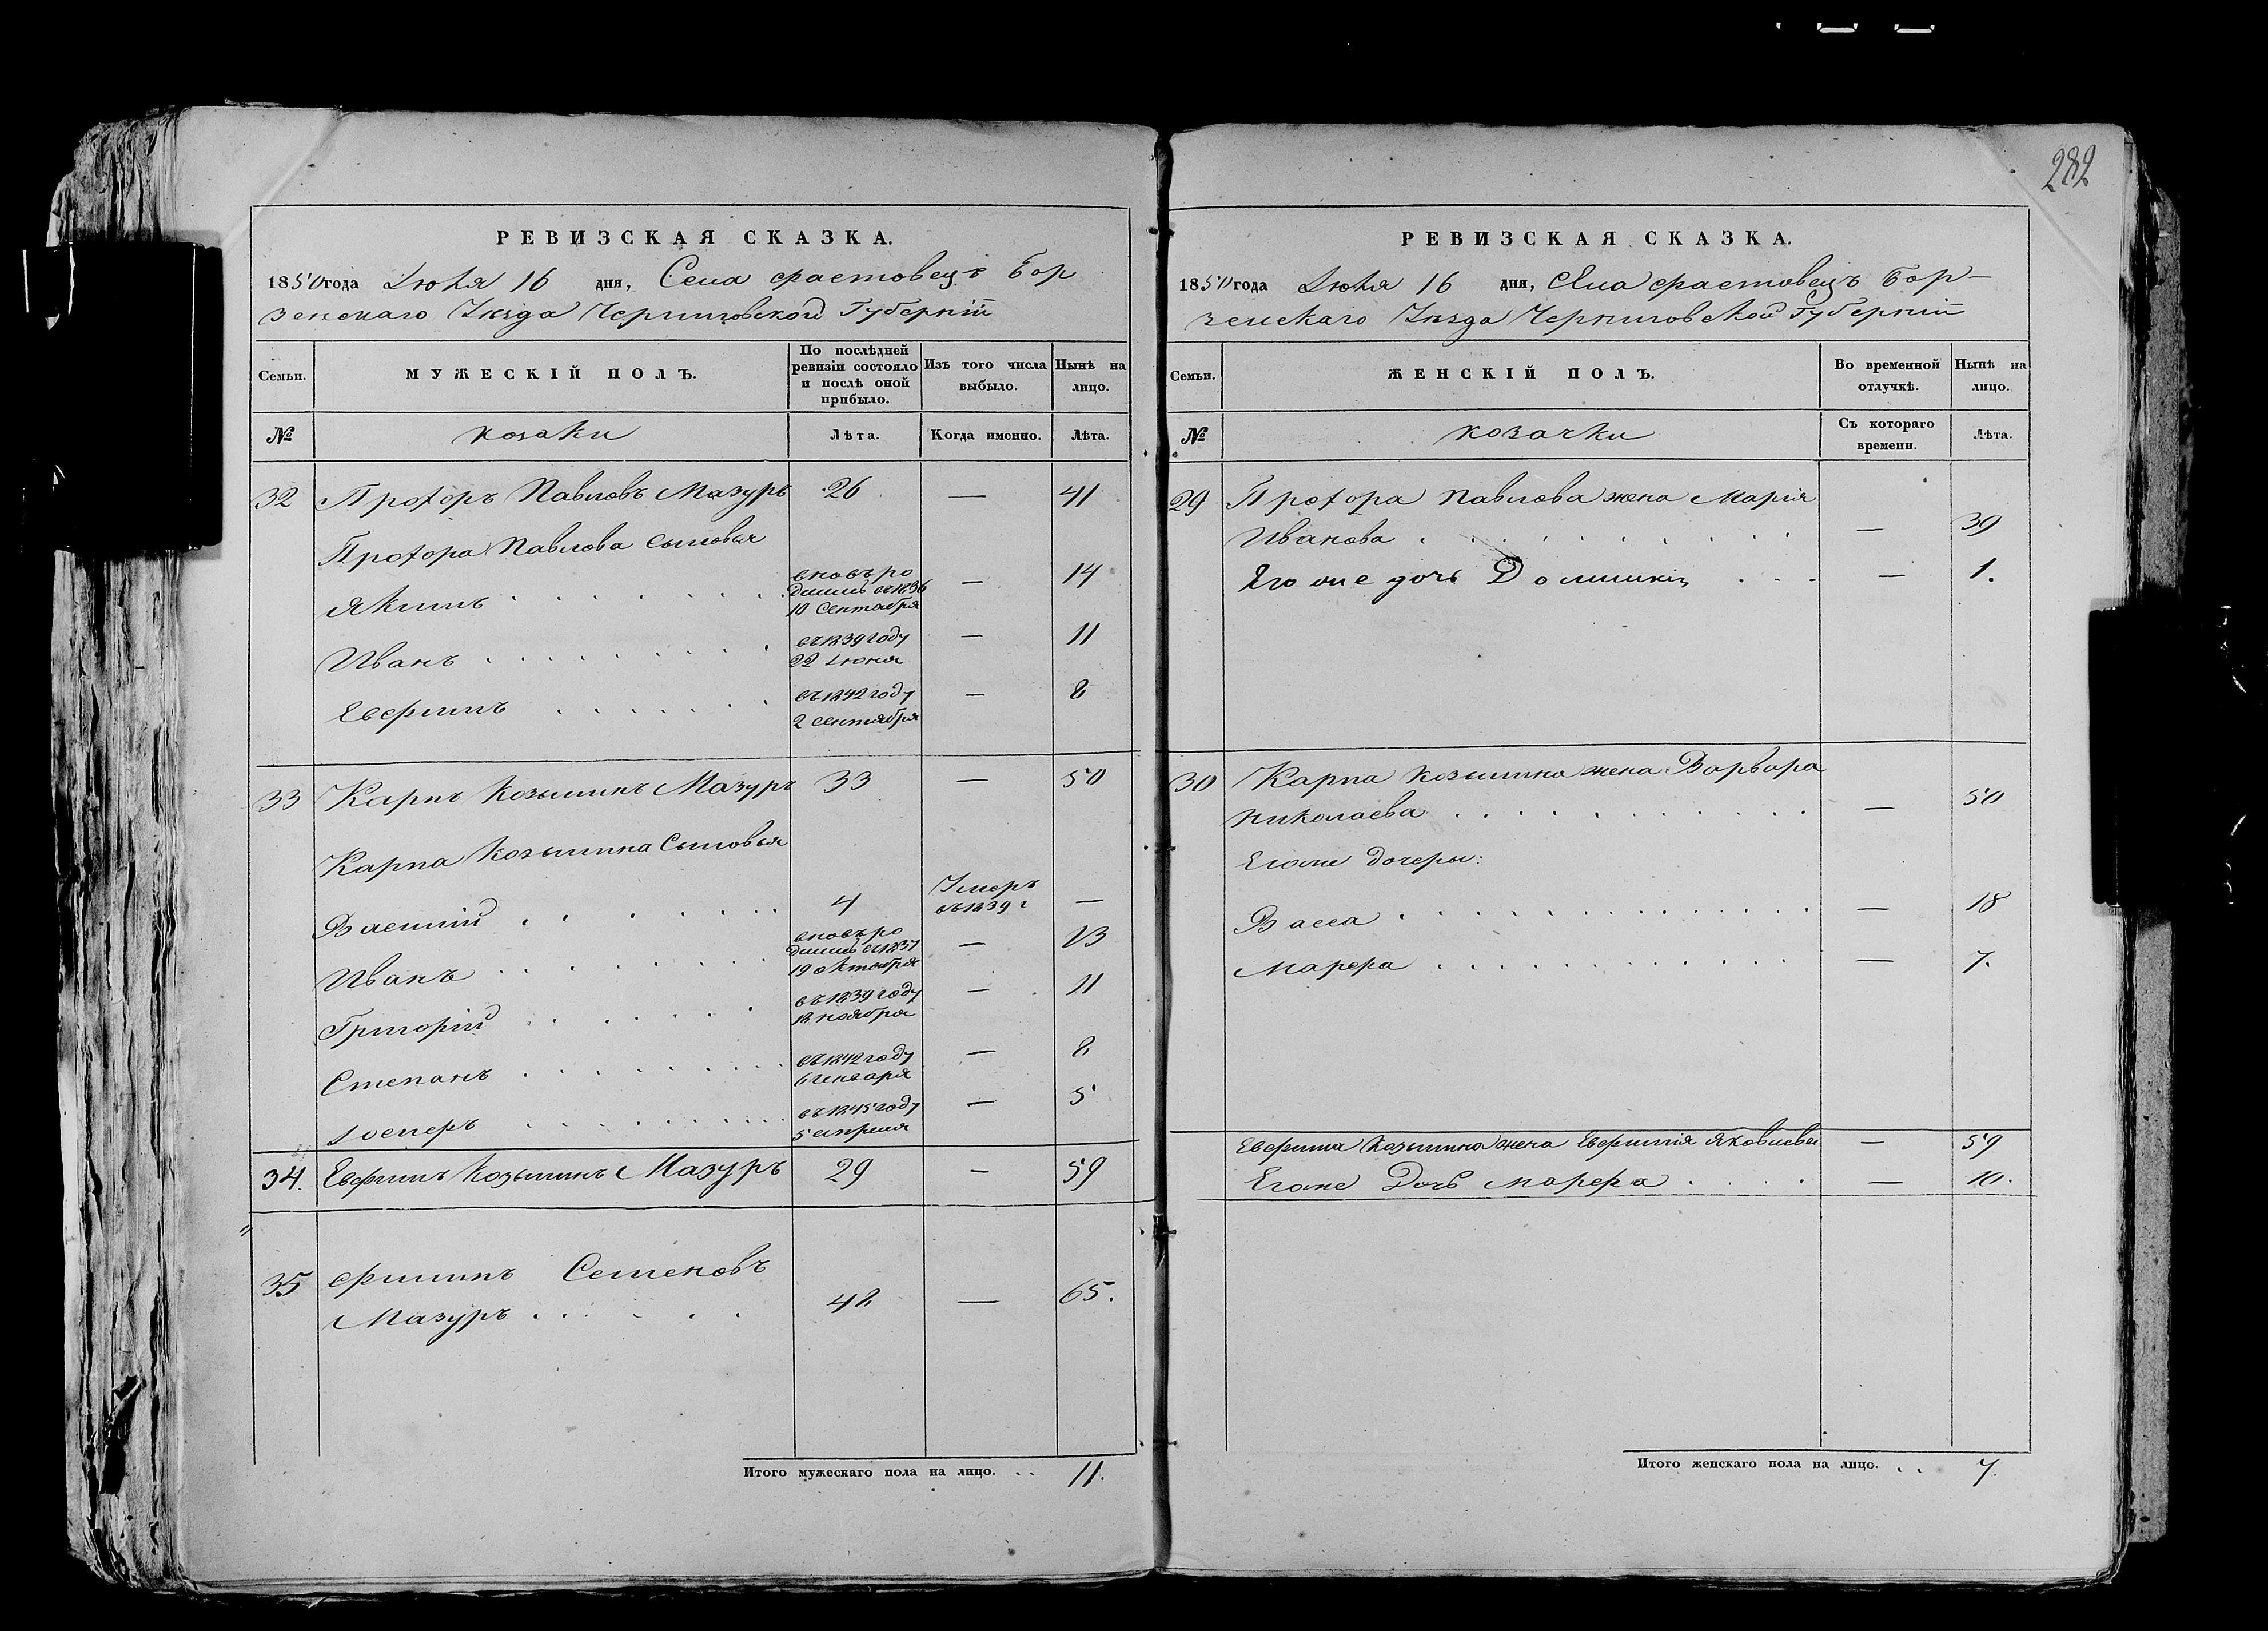 282
РЕВИЗСКАЯ СКАЗКА.
1850 года Июля 16 дня, Села Фастовецъ Бор
зенскаго Уезда Черниговской Губерніи
Семьи. МУЖЕСКІЙ ПОЛЪ. По послѣдней ревизіи состояло и послѣ оной прибыло. Изъ того числа выбыло. Нынѣ на лицо.
№ козаки Лѣта. Когда именно. Лѣта.
32 Прохоръ Павловъ Мазуръ 26 — 41
Прохора Павлова сыновья
Якимъ вновь ро
дился въ 1836
10 Сентября — 14
Иванъ въ 1839 году
22 Июня — 11
Евфимъ въ 1842 году
2 Сентября — 8
33 Карпъ Козьминъ Мазуръ 33 — 50
Карпа Козьмина Сыновья
4 Умеръ
въ 1839 г —
Иванъ вновь ро
дился въ 1837
19 октября — 13
Григорій въ 1839 году
18 ноября — 11
Степанъ въ 1842 году
6 генваря — 8
Іосифъ въ 1845 году
5 апреля — 5
34. Евфимъ Козьминъ Мазуръ 29 — 59
35 Фимимъ Семеновъ
Мазуръ 48 — 65.
Итого мужескаго пола на лицо. 11.
РЕВИЗСКАЯ СКАЗКА.
1850 года Июля 16 дня, Села Фастовецъ Бор-
зенскаго Уезда Черниговской Губерніи
Семьи. ЖЕНСКІЙ ПОЛЪ. Во временной отлучкѣ. Нынѣ на лицо.
№ козачки Съ котораго времени. Лѣта.
29 Прохора Павлова жена Марія
Иванова — 39
Его же дочь — 1.
30 Карпа Козьмина жена Варвара
Николаева — 50
Егоже дочеры:
Васса — 18
Марфа — 7.
Евфима Козьмина жена Евфимія Яковлева — 59
Егоже Дочь Марфа — 10.
Итого женскаго пола на лицо. 7.